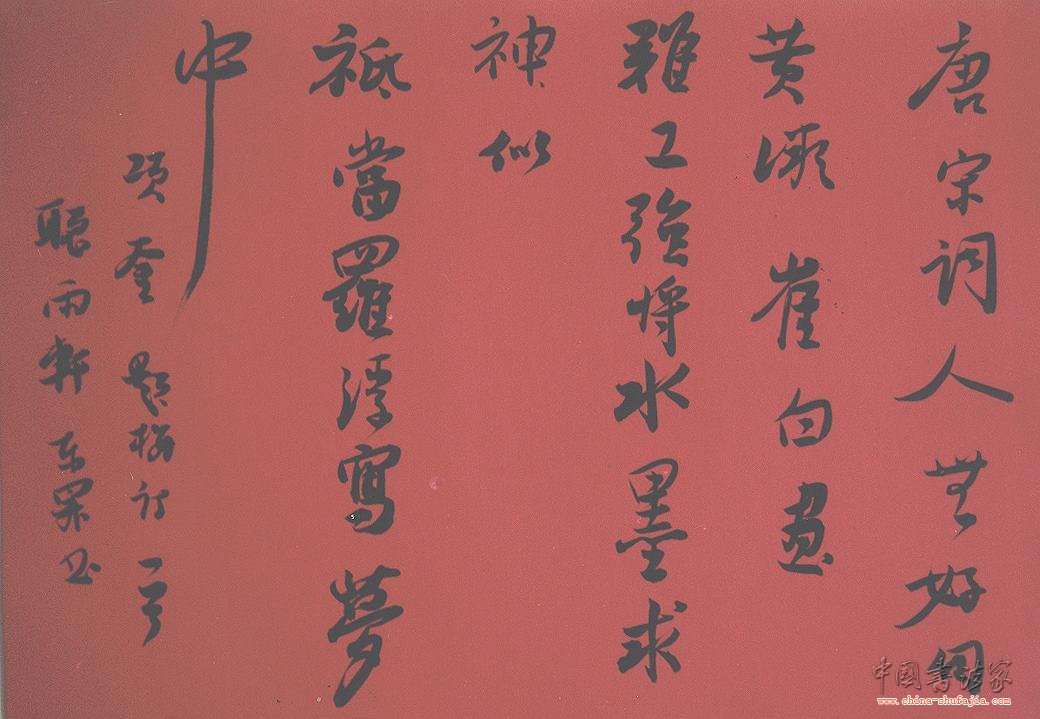 唐宋词人无好句
黄 崔白画
难工强将水墨求
神似
祗当罗浮写梦
中
项奎 题梅诗一首
听雨轩 东 书
中国书法家
www.china-shufajia.com